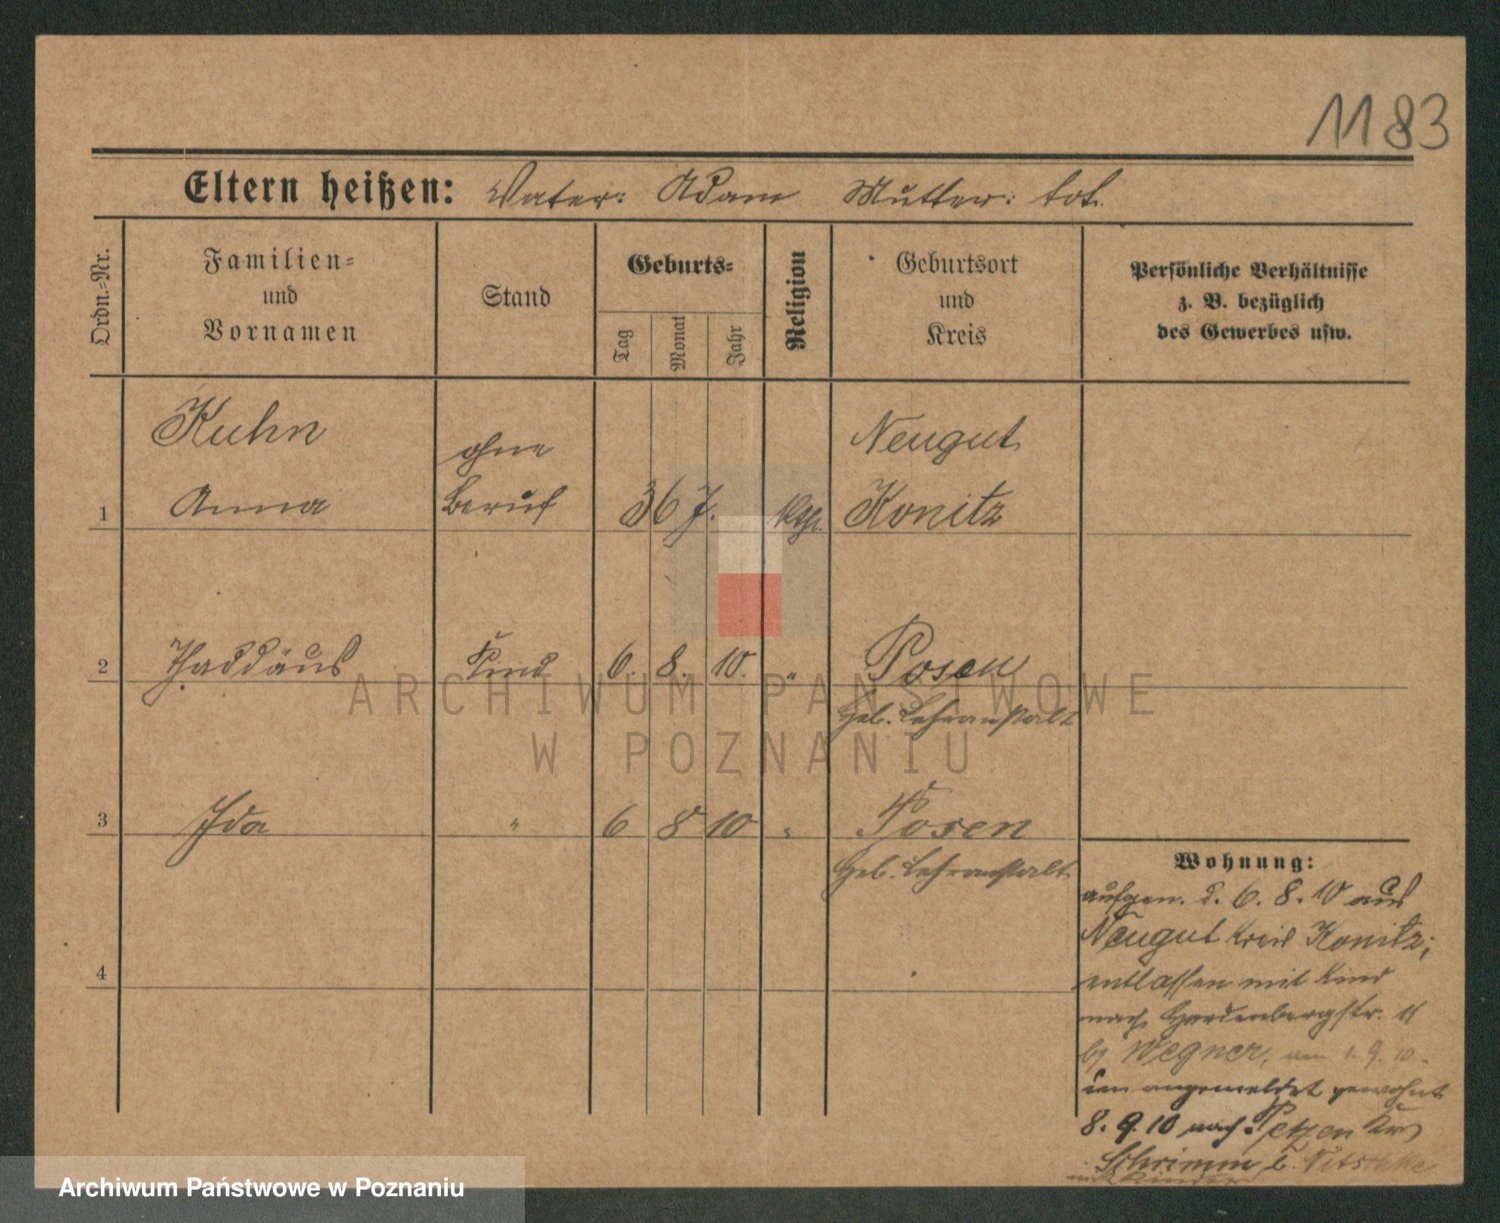 1183
Eltern heißen: Vater: Adam Mutter: tot.
Ordn.-Nr.
Familien-
und
Vornamen
Stand
Geburts-
Tag
Monat
Jahr
Religion
Geburtsort
und
Kreis
Persönliche Verhältnisse
z. B. bezüglich
des Gewerbes usw.
Kuhn
Anna
ohne
Beruf
36 J.
kth.
Neugut
Konitz
1
2 Thaddäus Kind 6. 8. 10. " Posen
Heb. Lehranstalt
3 Ida " 6 8 10 " Posen
Heb. Lehranstalt
4
Wohnung:
aufgen. d. 6. 8. 10 aus
Neugut Kreis Konitz;
entlassen mit Kind
nach Hardenbergstr. 11
bei Wegner, am 1. 9. 10.
unangemeldet gewohnt
8. 9. 10 nach Petzen Krs
Schrimm b. Nitschke
mit Kinder
ARCHIWUM PAŃSTWOWE
W POZNANIU
Archiwum Państwowe w Poznaniu